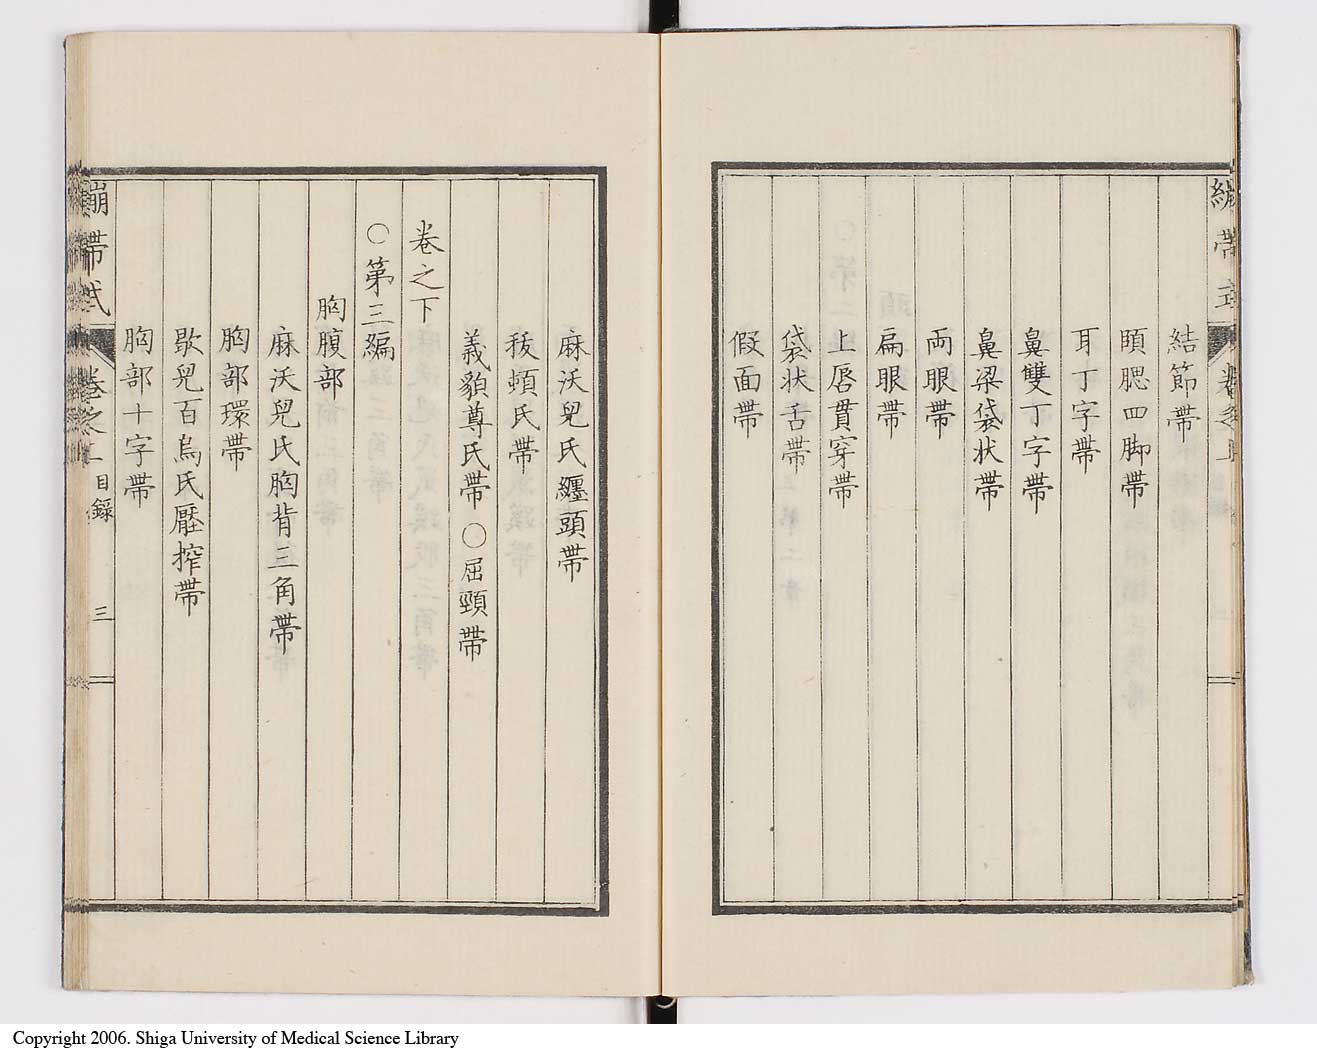 結節帶
頤腮四脚帶
耳丁字帶
鼻雙丁字帶
鼻梁袋状帶
両眼帶
扁眼帶
上唇貫穿帶
袋状舌帶
假面帶
麻沃兒氏纒頭帶
扳頓氏帶
義貌尊氏帶○屈頸帶
卷之下
○第三編
胸腹部
麻沃兒氏胸背三角帶
胸部環帶
歇兒百烏氏壓搾帶
胸部十字帶
繃帶式
卷之
目錄
三
Copyright 2006. Shiga University of Medical Science Library